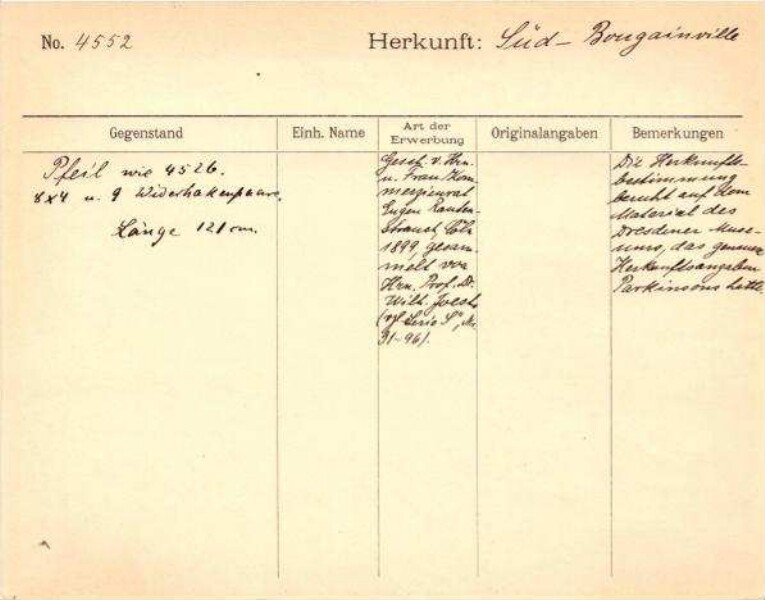 No. 4552
Herkunft: Süd-Bougainville
Gegenstand
Einh. Name
Art der
Erwerbung
Originalangaben
Bemerkungen
Pfeil wie 4526.
8x4 u. 9 Widerhakenpaare.
Länge 121 cm.
Gesch. v. Hrn.
u. Frau Kom-
merzienrat
Eugen Rauten-
strauch, Cöln
1899, gesam-
melt von
Hrn. Prof. Dr.
Wilh. Joest
(vgl. Serie S", No.
31-96).
Die Herkunfts-
bestimmung
beruht auf dem
Material des
Dresdener Muse-
ums, das genauere
Herkunftsangaben
Parkinsons hatte.